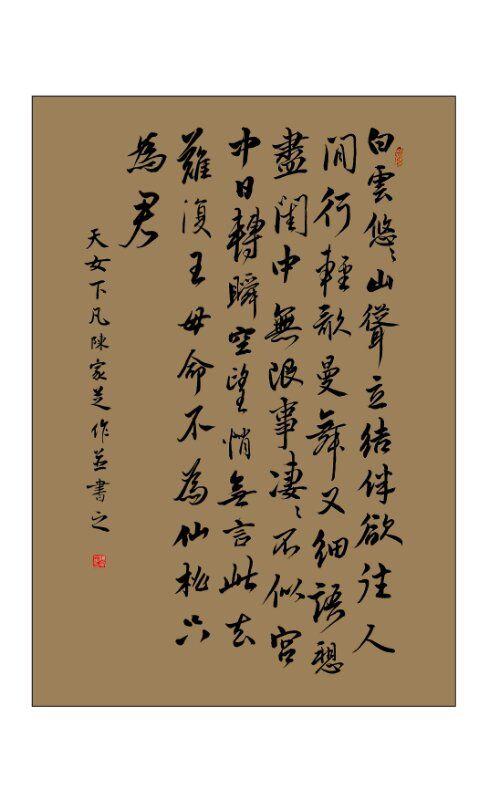 白雲悠々山聳立結伴欲往人
間行輕歌曼舞又細語想
盡閨中無限事凄々不似宮
中日轉瞬空望悄無言此去
難復王母命不為仙桃只
為君
天女下凡陳家芝作並書之